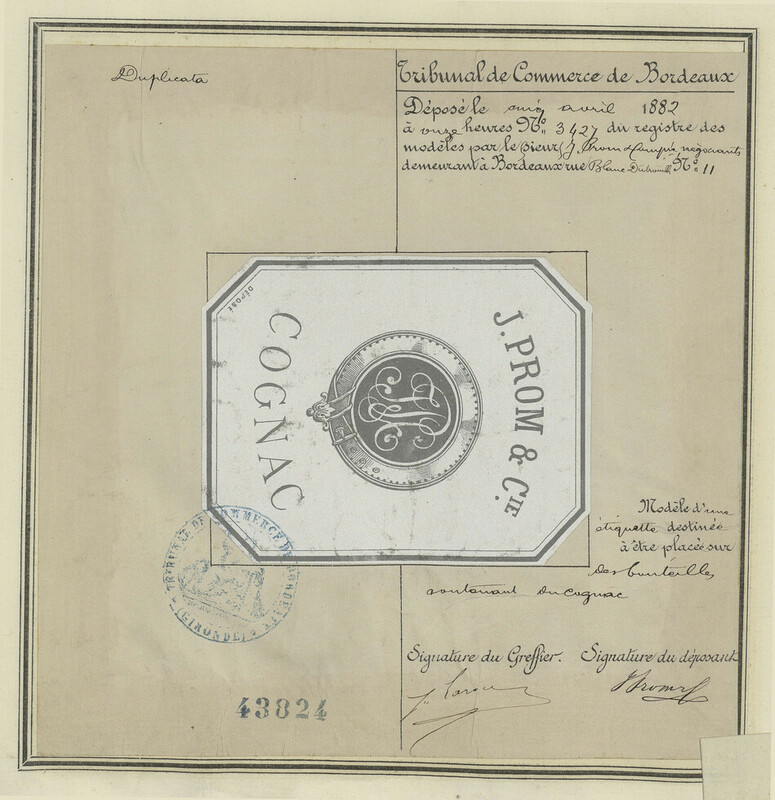 Duplicata
Tribunal de Commerce de Bordeaux
Déposé le cinq avril 1882
à onze heures No. 3427 du registre des
modèles par le sieur J. Prom & Compie négociants
demeurant à Bordeaux rue Blanc Dutrouilh No. 11
DÉPOSÉ
J. PROM & CIE.
COGNAC
Modèle d'une
étiquette destinée
à être placée sur
des bouteilles
contenant du cognac
TRIBUNAL DE COMMERCE DE BORDEAUX
(GIRONDE)
Signature du Greffier. Signature du déposant
43824